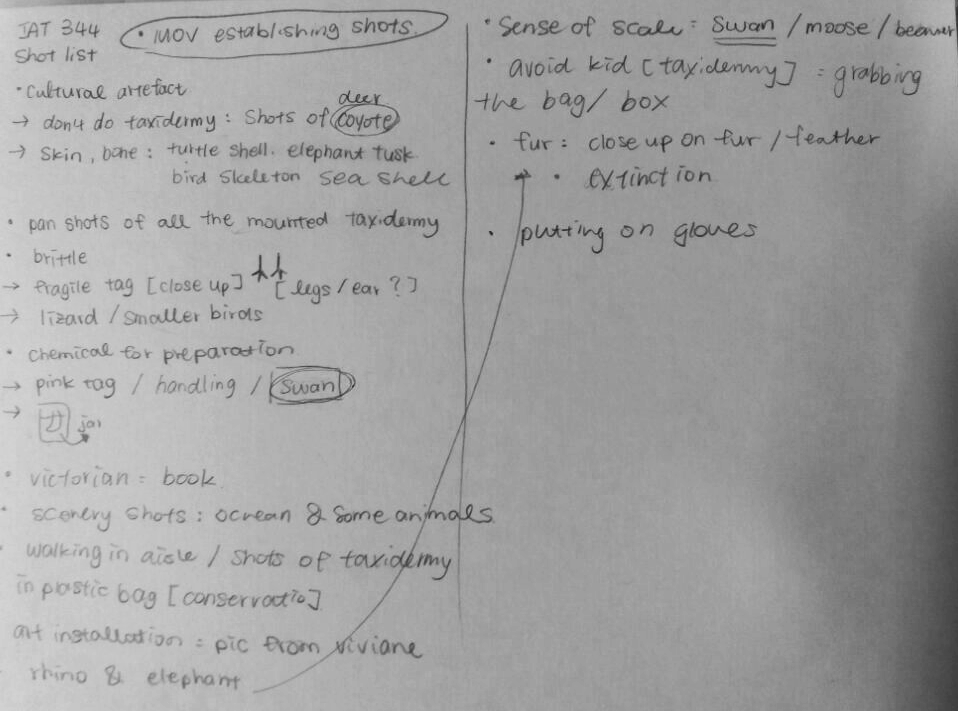 IAT 344
• MOV establishing shots.
Shot list
• Cultural artefact
deer
→ don't do taxidermy : Shots of coyote
→ Skin, bone : turtle shell. elephant tusk
bird skeleton sea shell
• pan shots of all the mounted taxidermy
• brittle
→ fragile tag [close up] [legs/ear ?]
→ lizard / smaller birds
• chemical for preparation
→ pink tag / handling / swan
→ jar
• victorian = book
• scenery shots : ocrean & some animals
• walking in aisle / shots of taxidermy
in plastic bag [conservatio]
art installation = pic from viviane
• rhino & elephant
• Sense of scale : swan / moose / beaver
• avoid kid [taxidermy] = grabbing
the bag / box
• fur : close up on fur / feather
• extinction
• putting on gloves